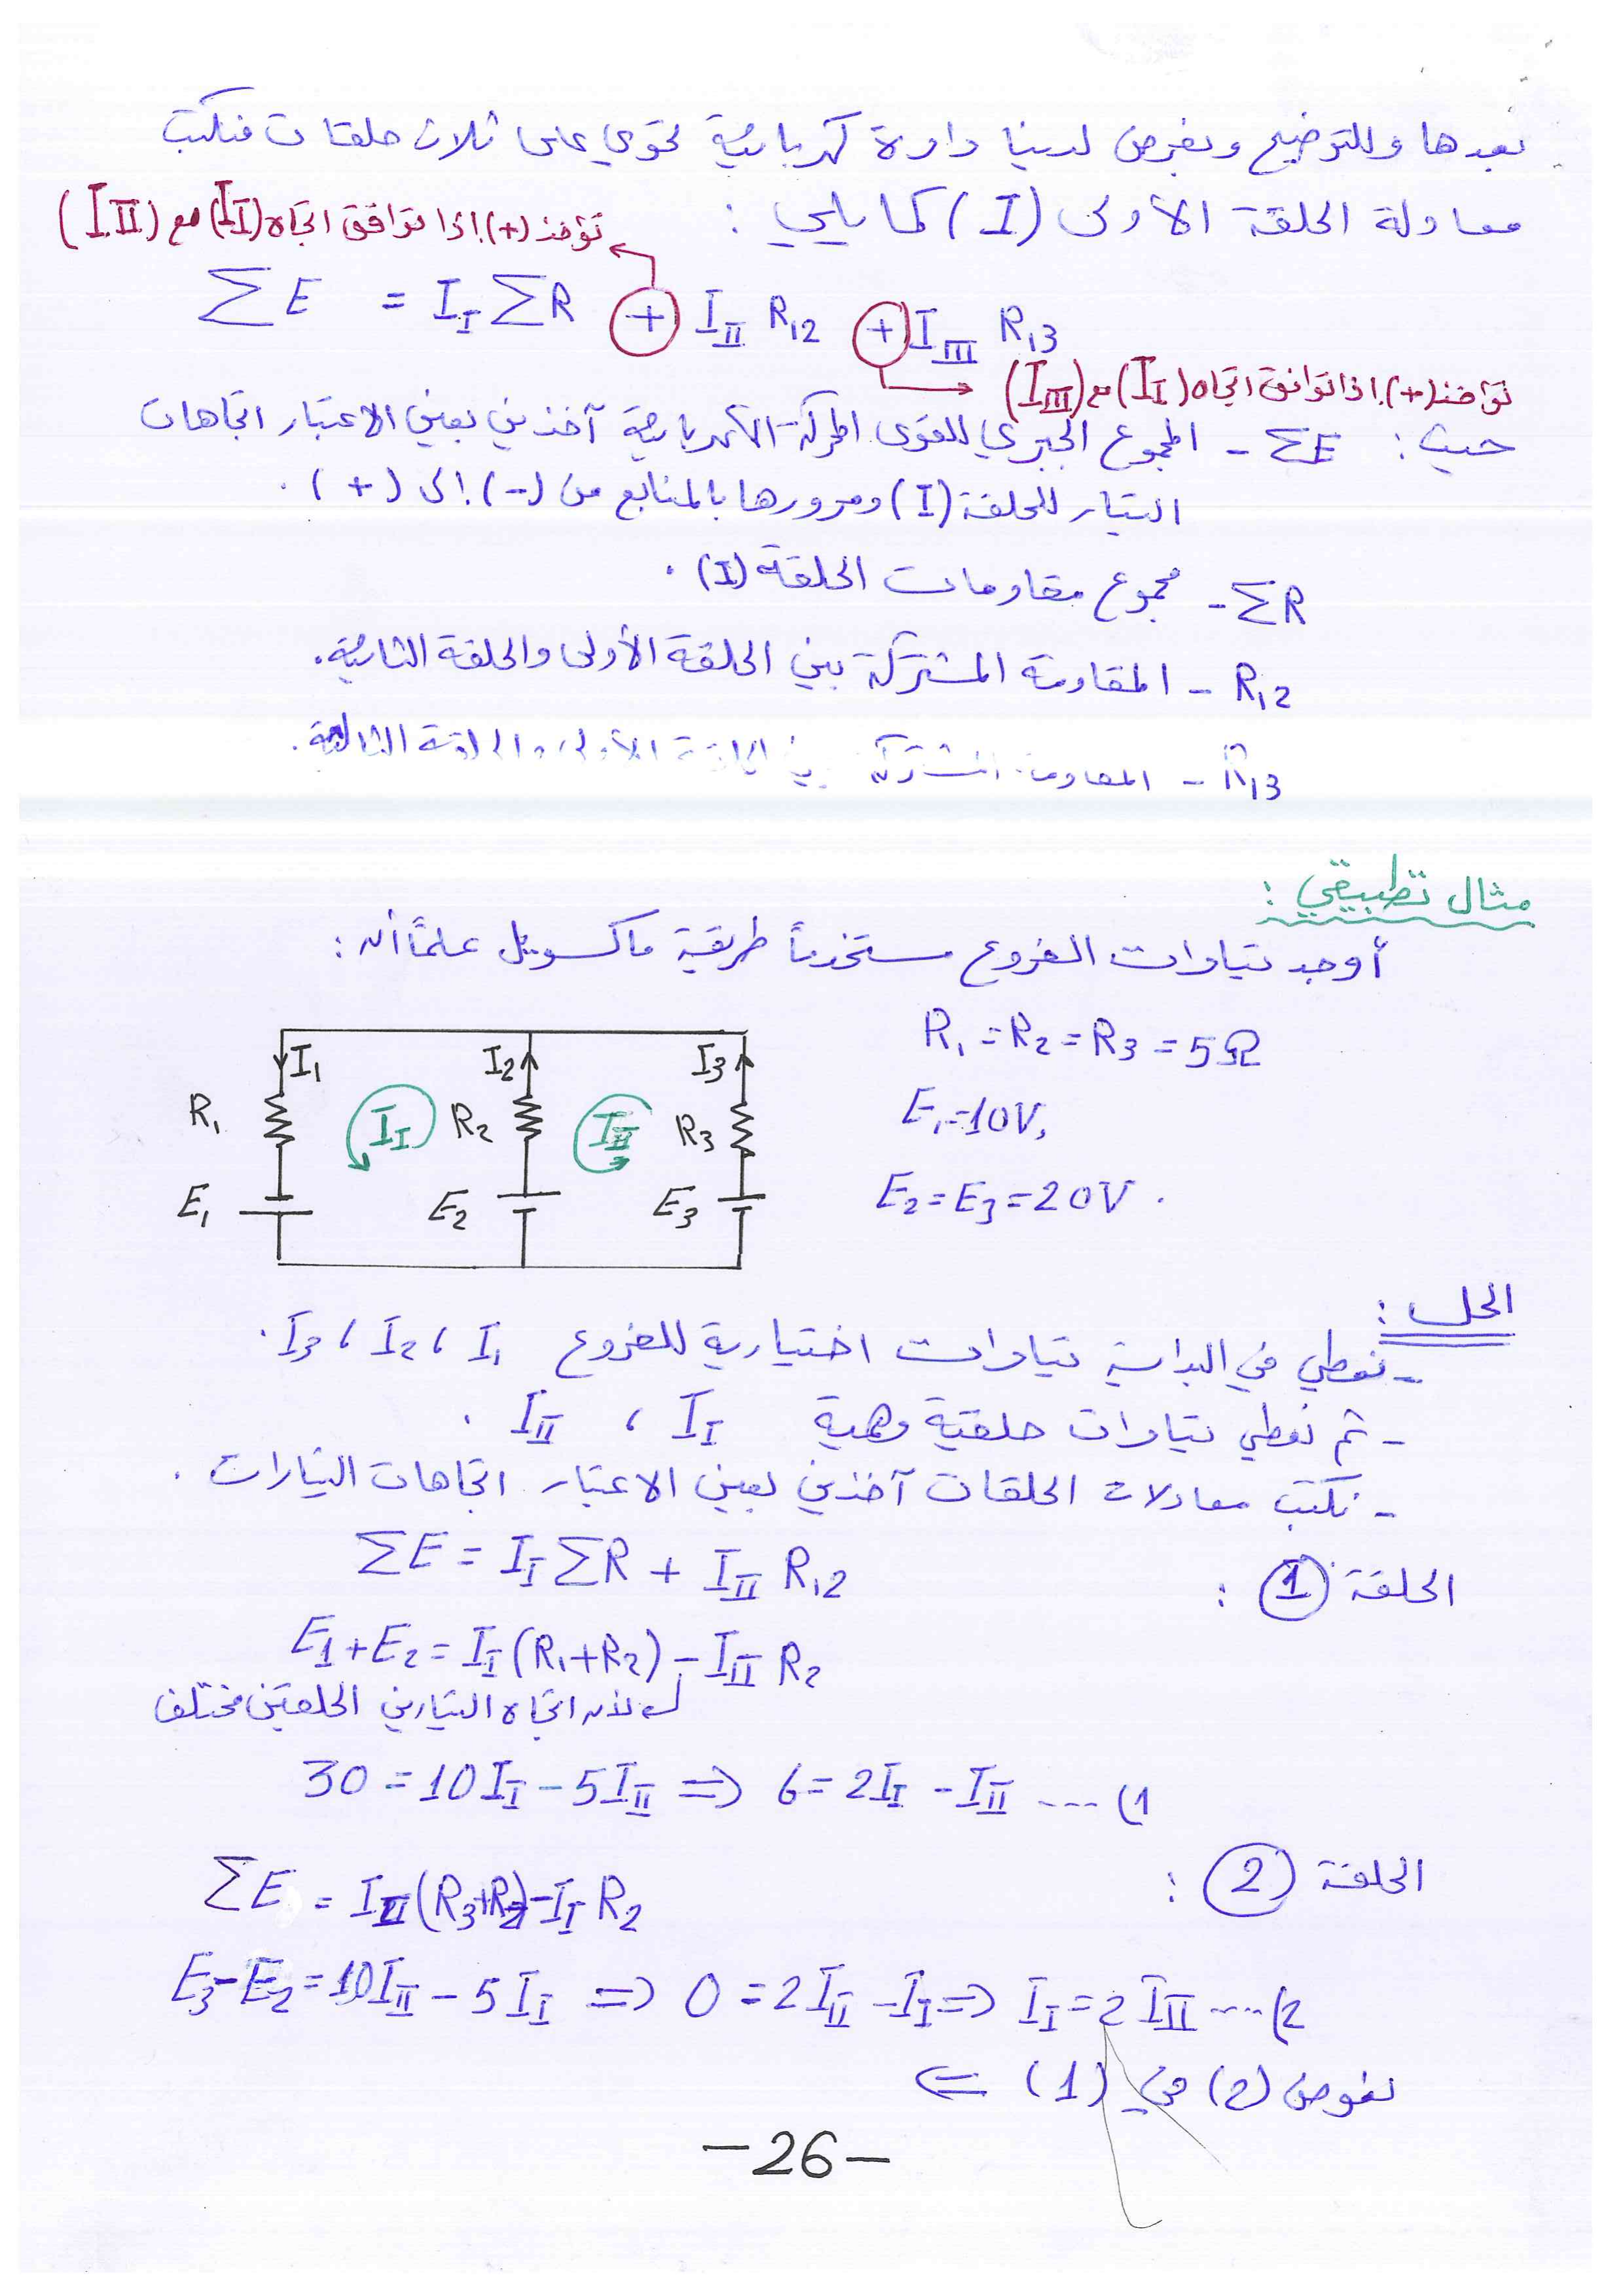 نعيدها وللتوضيح ونفرض لدينا دارة كهربائية تحوي على ثلاث حلقات فنكتب
معادلة الحلقة الأولى (I) كما يلي :
تؤخذ (+) إذا توافق اتجاه (I_I) مع (I_II)
ΣE = I_I ΣR + I_II R12 + I_III R13
تؤخذ (+) إذا توافق اتجاه (I_I) مع (I_III)
حيث : ΣE - المجموع الجبري للقوى المحركة الكهربائية آخذين بعين الاعتبار اتجاهات
التيار للحلقة (I) ومرورها بالمنابع من (-) إلى (+) .
ΣR - مجموع مقاومات الحلقة (I) .
R12 - المقاومة المشتركة بين الحلقة الأولى والحلقة الثانية .
R13 - المقاومة المشتركة بين الحلقة الأولى والحلقة الثالثة .
مثال تطبيقي :
أوجد تيارات الفروع مستخدماً طريقة ماكسويل علماً أنه :
R1 = R2 = R3 = 5Ω
E1 = 10V,
E2 = E3 = 20V .
I1 I2 I3
R1 I_I R2 I_II R3
E1 E2 E3
الحل :
- نعطي في البداية تيارات اختيارية للفروع I1 ، I2 ، I3 .
- ثم نعطي تيارات حلقية وهمية I_I ، I_II .
- نكتب معادلات الحلقات آخذين بعين الاعتبار اتجاهات التيارات .
الحلقة 1 : ΣE = I_I ΣR + I_II R12
E1 + E2 = I_I (R1 + R2) - I_II R2
لأن اتجاه التيارين الحلقتين مختلف
30 = 10I_I - 5I_II ⇒ 6 = 2I_I - I_II .... (1
الحلقة 2 :
ΣE = I_II (R3 + R2) - I_I R2
E3 - E2 = 10I_II - 5I_I ⇒ 0 = 2I_II - I_I ⇒ I_I = 2I_II .... (2
نعوض (2) في (1) ⇐
-26-